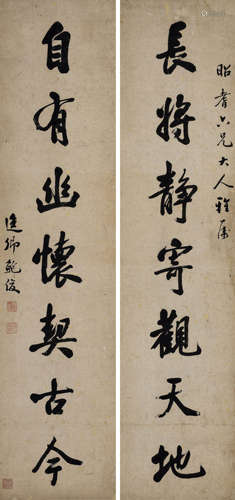 昭耆六兄大人雅屬
長將靜寄觀天地
自有幽懷契古今
逸卿鮑俊